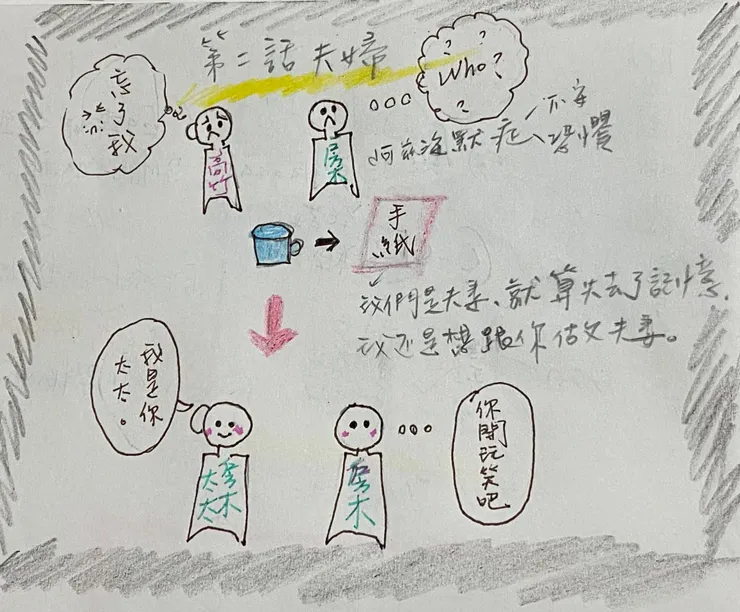 第二話 夫婦
忘了我
Who?
? ? ? ?
不安
阿茲海默症 恐懼
高竹
房木
手紙
我們是夫妻、就算失去了記憶,
我还是想跟你做父夫妻。
我是你
太太。
你開玩笑吧
太太 房木
房木